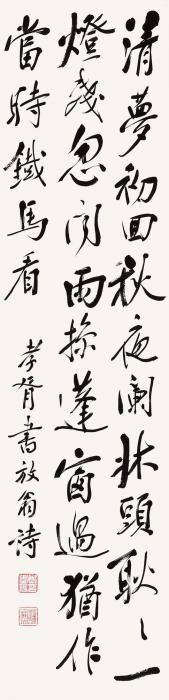 清夢初回秋夜闌牀頭耿〻一
燈殘忽聞雨掠蓬窗過猶作
當時鐵馬看
孝胥書放翁詩